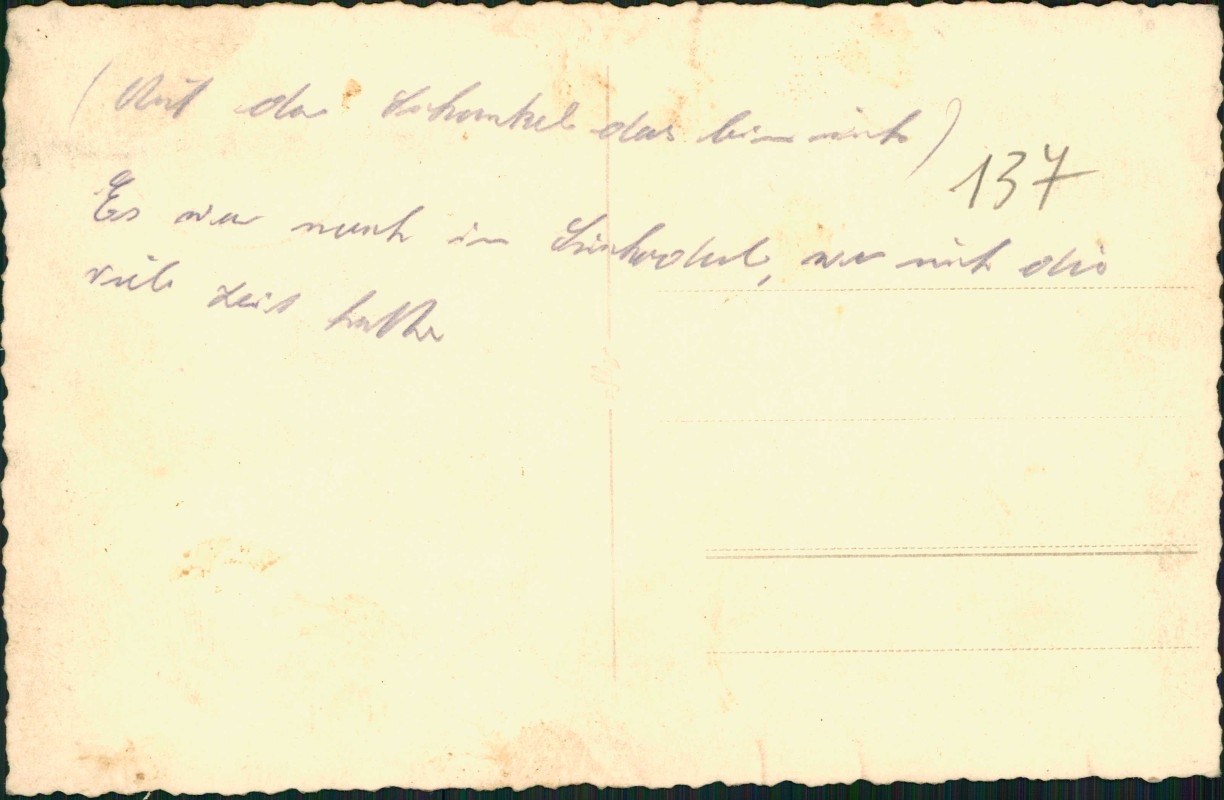 (Auf der Schaukel das bin ich)
137
Es war noch in, wo ich die
viele Zeit hatte